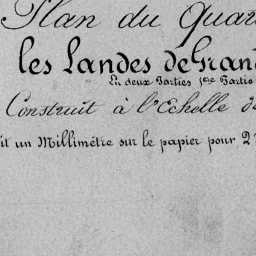 Plan du Quar
les Landes de Gran
En deux Parties 1ère Partie
Construit à l'Echelle d
it un Millimètre sur le papier pour 2